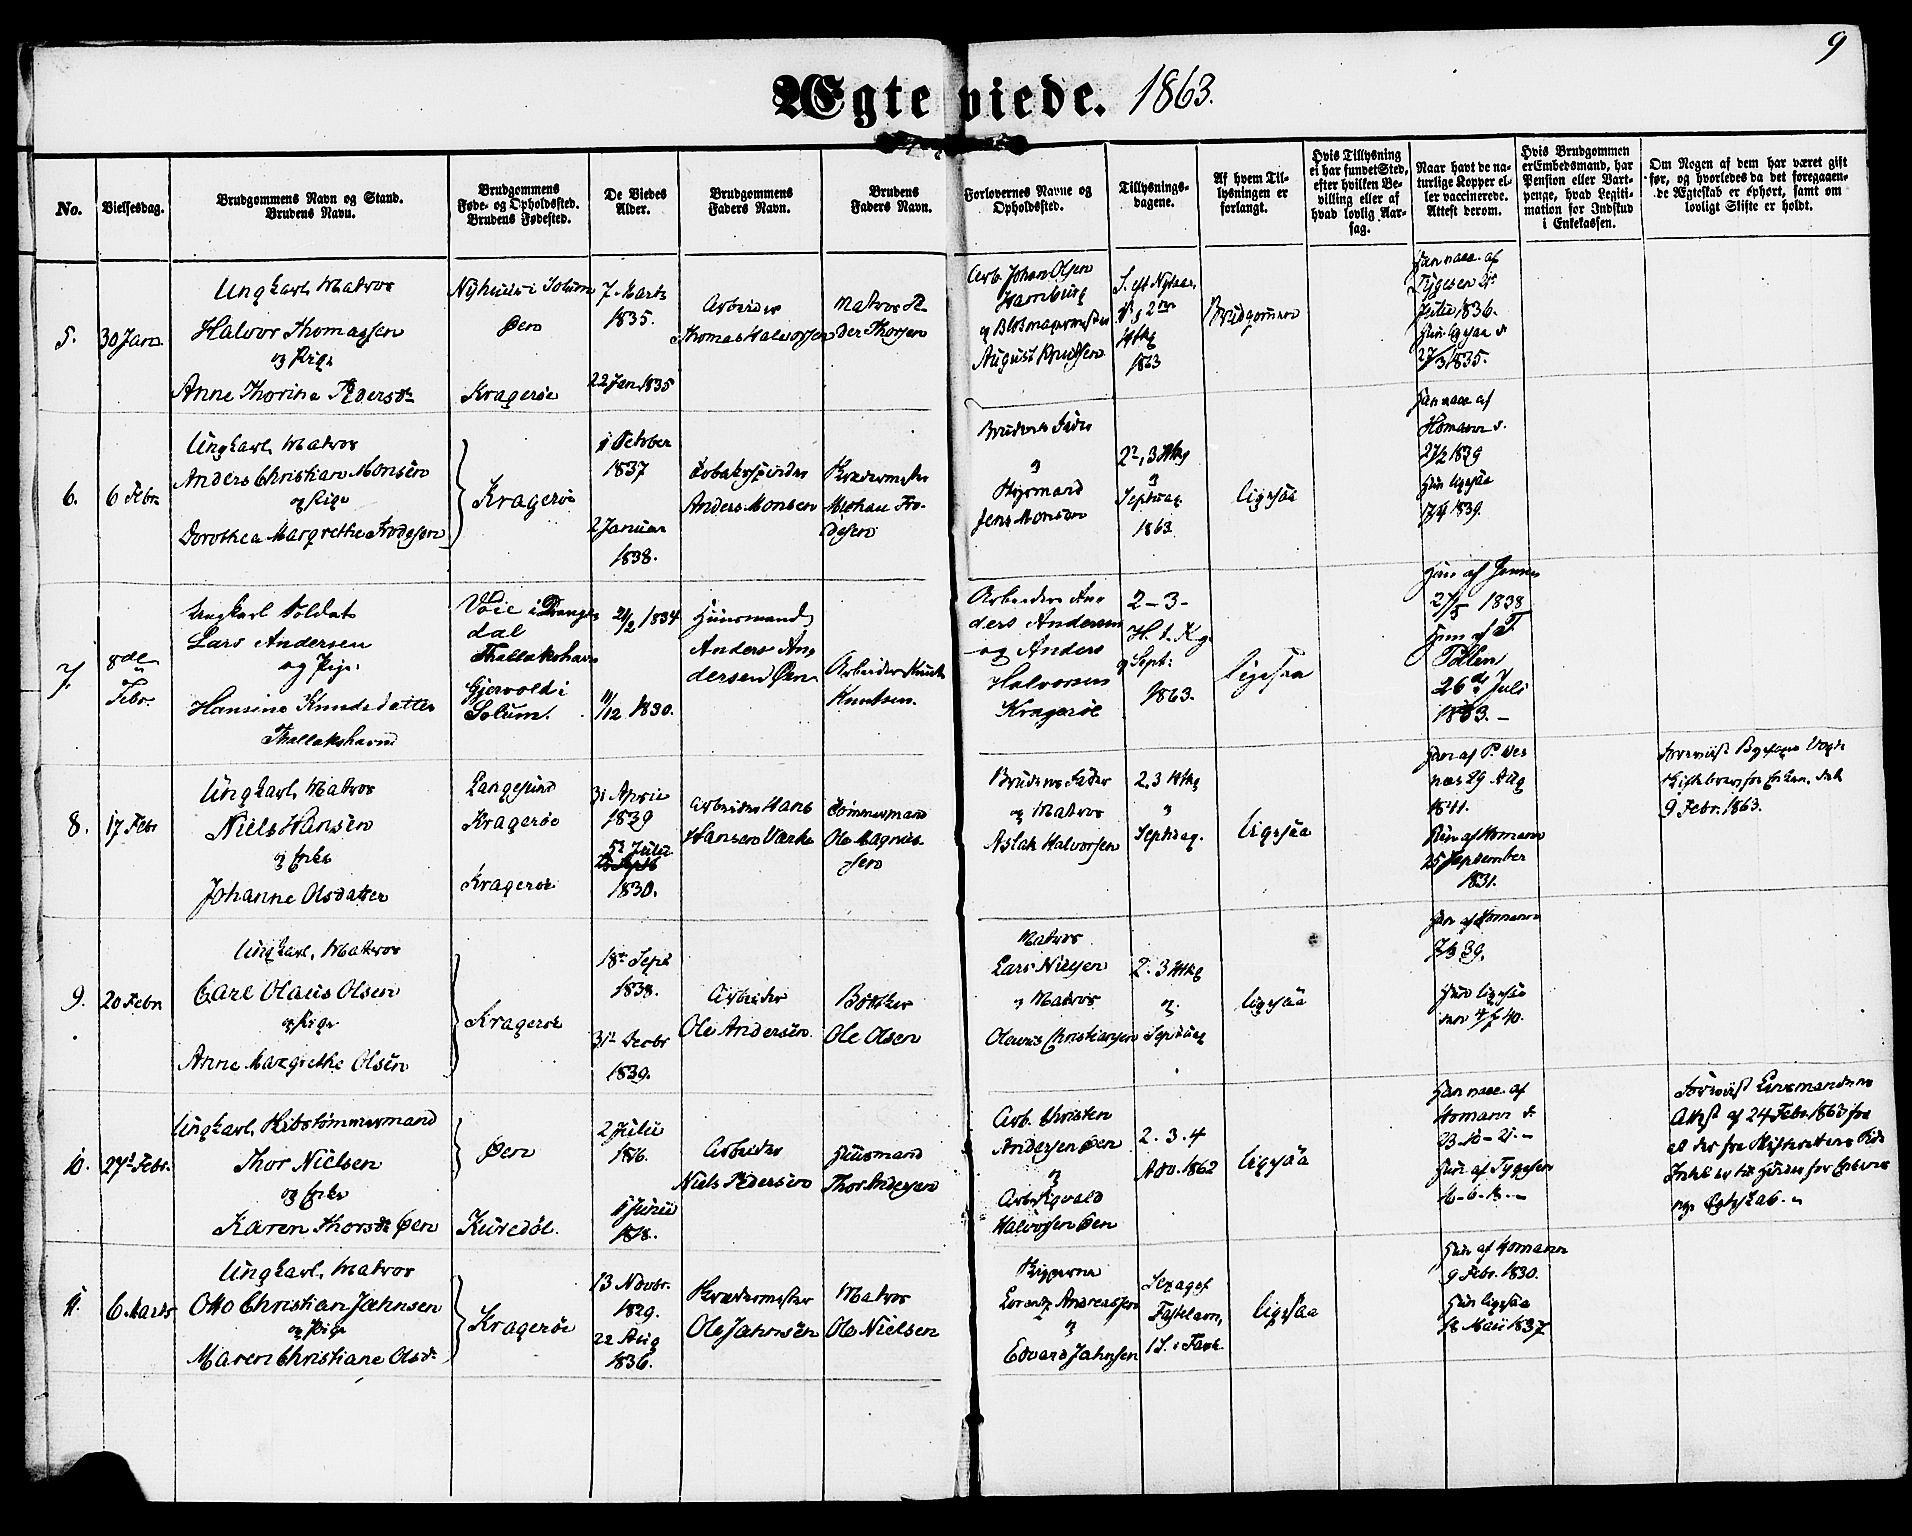 9
Ægteviede. 1863.
No.
Vielsesdag.
Brudgommens Navn og Stand.
Brudens Navn.
Brudgommens
Føde- og Opholdssted.
Brudens Fødested.
De Viedes
Alder.
Brudgommens
Faders Navn.
Brudens
Faders Navn.
Forlovernes Navne og
Opholdssted.
Tillysnings-
dagene.
Af hvem Til-
lysningen er
forlangt.
Hvis Tillysning
ei har fundet Sted,
efter hvilken Be-
villing eller af
hvad lovlig Aar-
sag.
Naar havt de na-
turlige Kopper el-
ler vaccinerede.
Attest derom.
Hvis Brudgommen
er Embedsmand, har
Pension eller Vart-
penge, hvad Legiti-
mation for Indskud
i Enkekassen.
Om Nogen af dem har været gift
før, og hvorledes da det foregaaen-
de Ægteskab er ophørt, samt om
lovligt Skifte er holdt.
5.
30 Jan
Ungkarl, Matros
Halvor Thomassen
og Pige
Anne Thorine Pedersdr
Nyhuus i Solum
Øen
Kragerøe
7 Marts
1835.
22 Jan 1835
Arbeider
Thomas Halvorsen
Matros
Thorsen
Arb. Johan Olsen
Hamburg
og Blokmagermester
August Knudsen
1863
Brudgommen
Han vacc. af
Tygesen
Julii 1836.
Hun ligesaa d.
27/3 1835.
6.
6 Febr
Ungkarl, Matros
Anders Christian Monsen
og Pige
Dorothea Margrethe Frodesen
Kragerøe
1 October
1837
2 Januar
1838.
Anders Monsen
Fro-
desen
Brudens Fader
og
Jens Monsen
2, 3 Htkg
og
Septuag
1863
ligesaa
Han vacc af
Homann d.
27/2 1839
Hun ligesaa
17/4 1839.
7.
8de
Febr.
Ungkarl Soldat
Lars Andersen
og Pige
Hansine Knudsdatter
Thallakshavn
Voie i Drange-
dal
Thallakshavn
Gjervold i
Solum.
21/2 1834
11/12 1830.
Huusmand
Anders An-
dersen Øen
Arbeider Knud
Knutsen.
Arbeider An-
ders Andersen
og Anders
Halvorsen
Kragerøe
2 - 3 -
H. t. Kg.
og Sept:
1863.
ligesaa
Han af
27/5 1838
Hun af F
Tollen
26de Juli
1833. -
8.
17 Febr
Ungkarl, Matros
Niels Hansen
og Enke
Johanne Olsdatter
Langesund
Kragerøe
Kragerøe
31 April
1839
5t Julii
1830.
Arbeider Hans
Hansen
Tømmermand
Ole Magnus-
sen
Brudens Fader
og Matros
Aslak Halvorsen
2, 3 Htkg
og
Septuag.
ligesaa
Han af P. Wes
29 Aug
1841.
Hun af Homann
25 September
1831.
Forevist Byfoged
9 Febr. 1863.
9.
20 Febr
Ungkarl, Matros
Carl Olaus Olsen
og Pige
Anne Margrethe Olsen
Kragerøe
18t Sept
1838.
31t Decbr
1839.
Arbeider
Ole Andersen.
Bødker
Ole Olsen
Matros
Lars Nilsen
og Matros
Olaves Christiansen
2. 3 Htkg
og
Septuag
ligesaa
Han af Homann
39.
Hun ligesaa
40.
10.
27t Febr.
Ungkarl, Skibstømmermand
Thor Nielsen
og Enke
Karen Thorsdr Øen
Øen
Kuredøl.
2 Julii
1816.
1 Junii
1818.
Arbeider
Niels Pedersen
Huusmand
Thor Andersen
Arb. Christen
Andersen Øen
og
Halvorsen Øen
2. 3. 4
Adv. 1862
ligesaa
Han vacc. af
Homann d.
23-10-21. -
Hun af Tygesen
Forevist Lensmandens
Attest af 24 Febr. 1863 for
at der fra Skifterettens Side
Intet er til Hinder for Enkens
nye Egteskab. -
11.
6 Marts
Ungkarl, Matros
Otto Christian Jahnsen
og Pige
Maren Christiane Olsdr
Kragerøe
13 Novbr.
1829.
22 Aug
1836.
Ole Jahnsen
Matros
Ole Nielsen
Skipperne
Lorentz Andreassen
og
Edvard Jahnsen
Sexages
Fastelavn,
1 S. i Faste
ligesaa
Han af Homann
9 Febr. 1830.
Hun ligesaa
18 Maii 1837